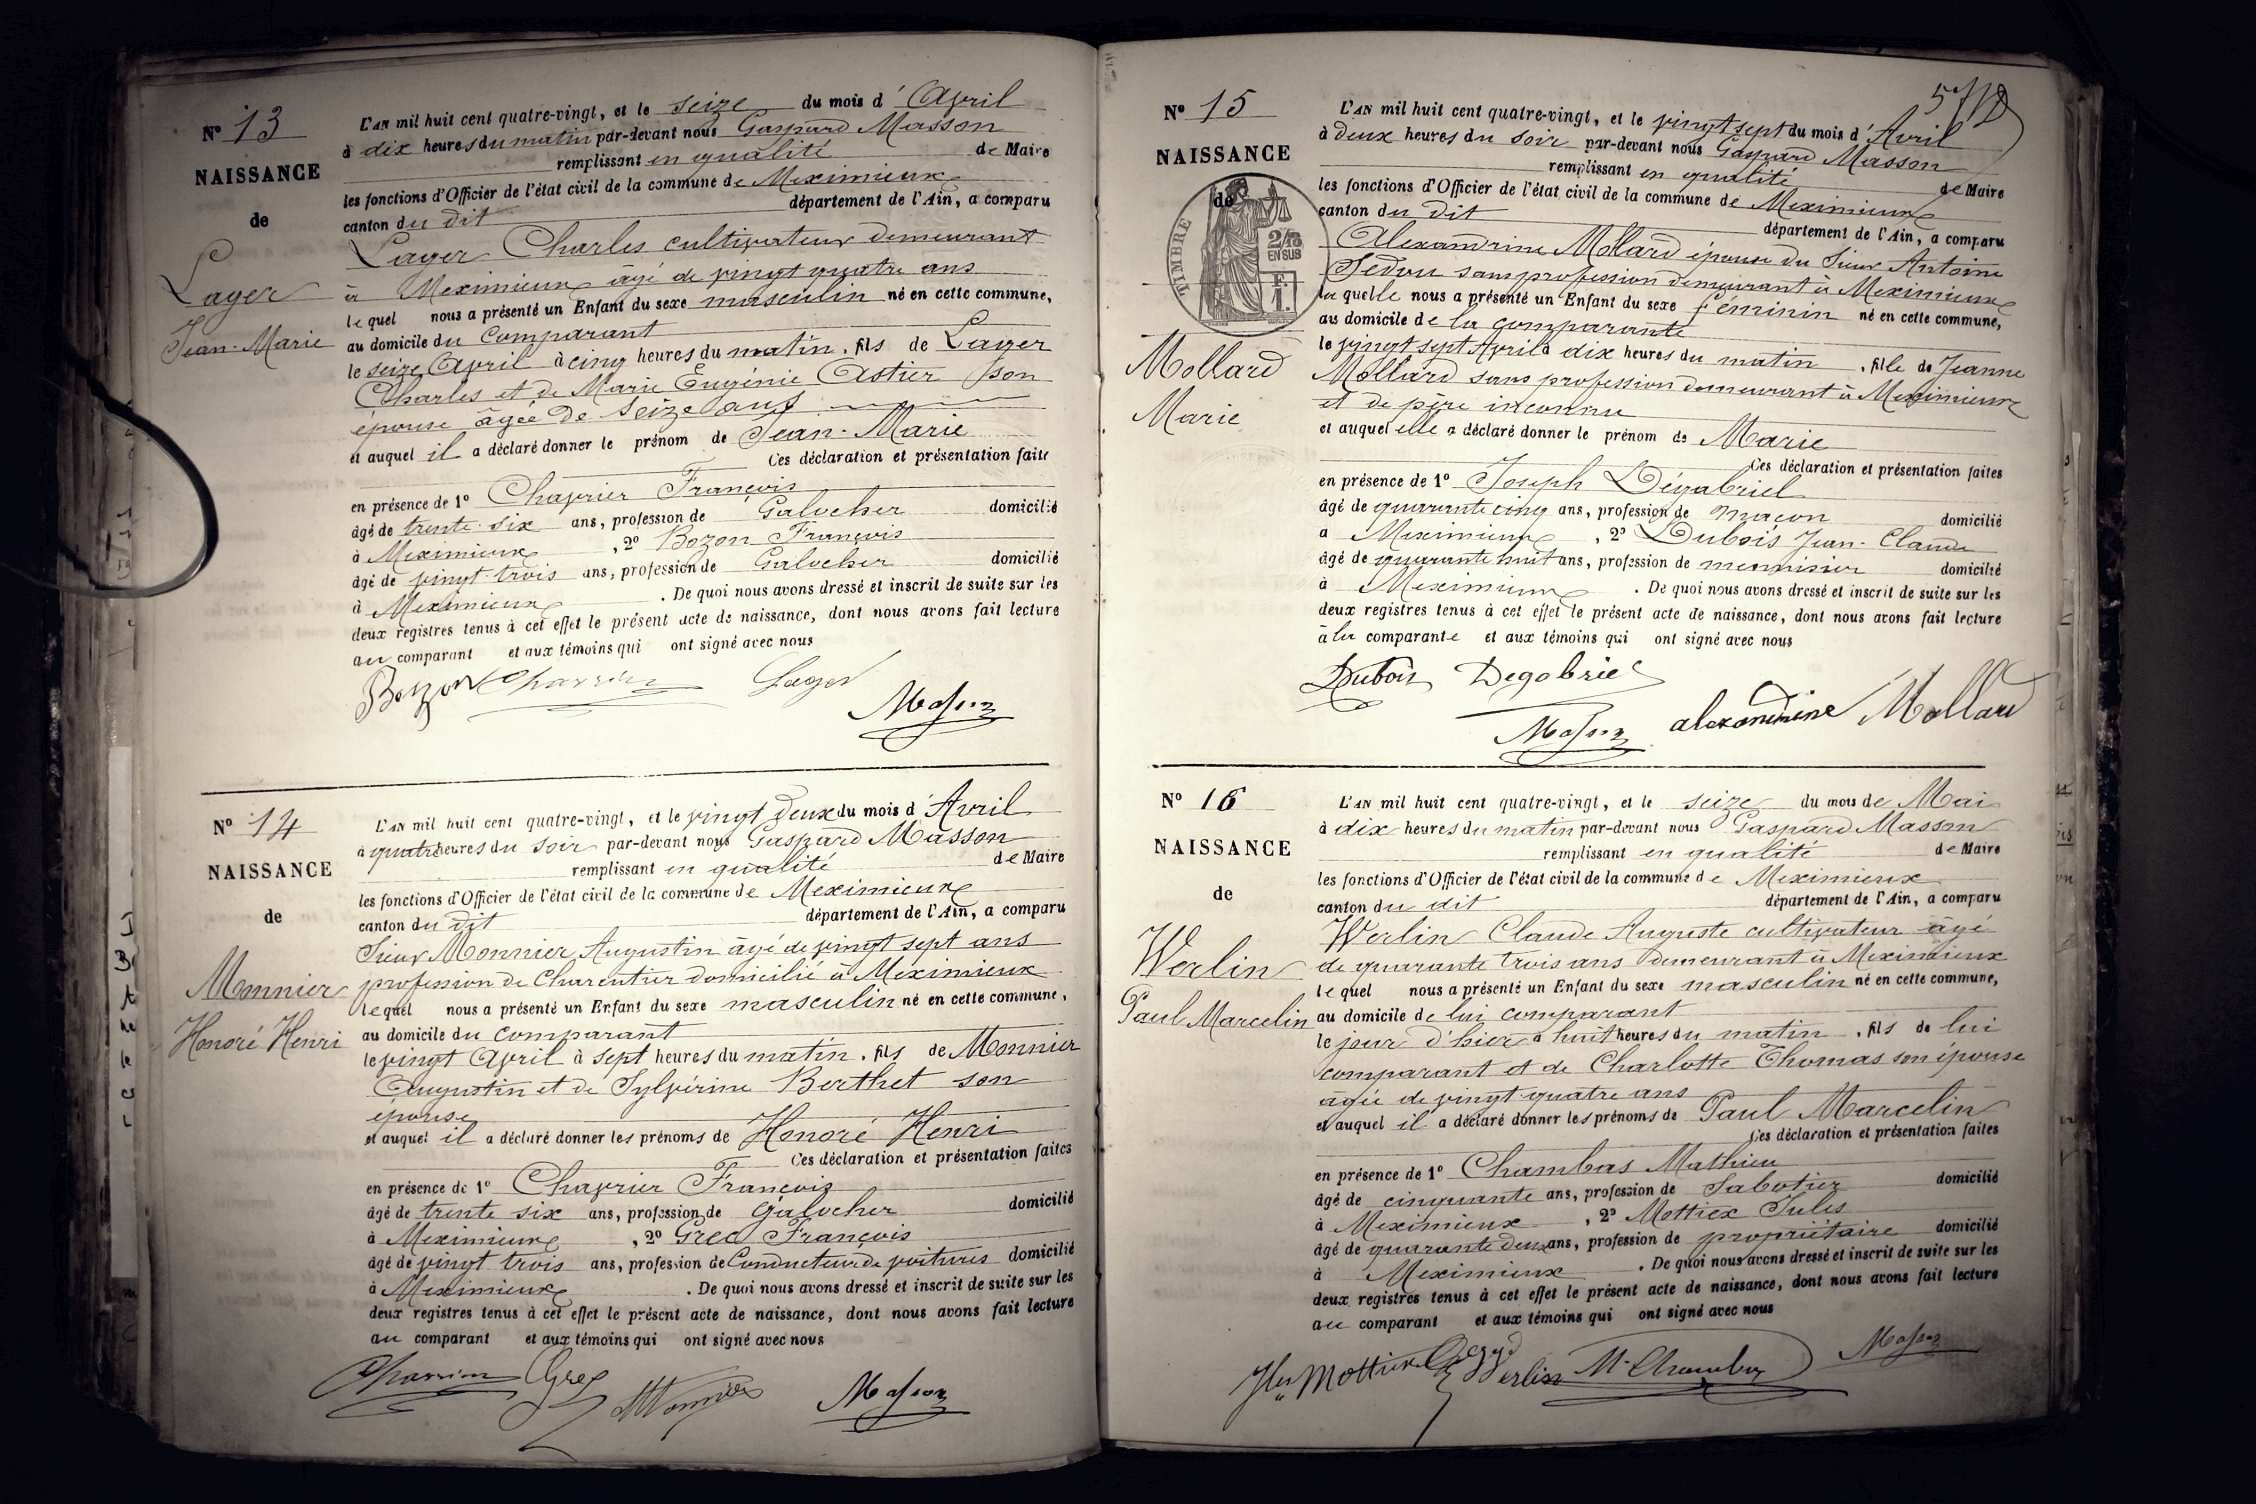 N° 13
NAISSANCE
de
Lager
Jean-Marie
L'AN mil huit cent quatre-vingt, et le seize du mois d'Avril
à dix heures du matin par-devant nous Gaspard Masson
remplissant en qualité de Maire
les fonctions d'Officier de l'état civil de la commune de Meximieux
canton du dit département de l'Ain, a comparu
Lager Charles cultivateur demeurant
à Meximieux âgé de vingt quatre ans
lequel nous a présenté un Enfant du sexe masculin né en cette commune,
au domicile du comparant
le seize Avril à cinq heures du matin, fils de Lager
Charles et de Marie Eugénie Astier son
épouse âgée de seize ans
et auquel il a déclaré donner le prénom de Jean-Marie
Ces déclaration et présentation faites
en présence de 1° Charrier François
âgé de trente-six ans, profession de Galocher domicilié
à Meximieux, 2° Bozon François
âgé de vingt-trois ans, profession de Galocher domicilié
à Meximieux. De quoi nous avons dressé et inscrit de suite sur les
deux registres tenus à cet effet le présent acte de naissance, dont nous avons fait lecture
au comparant et aux témoins qui ont signé avec nous
Bozon Charrier Lager
Masson
N° 14
NAISSANCE
de
Monnier
Honoré Henri
L'AN mil huit cent quatre-vingt, et le vingt deux du mois d'Avril
à quatre heures du soir par-devant nous Gaspard Masson
remplissant en qualité de Maire
les fonctions d'Officier de l'état civil de la commune de Meximieux
canton du dit département de l'Ain, a comparu
Sieur Monnier Augustin âgé de vingt sept ans
profession de Charentier domicilié à Meximieux
lequel nous a présenté un Enfant du sexe masculin né en cette commune,
au domicile du comparant
le vingt Avril à sept heures du matin, fils de Monnier
Augustin et de Sylvérine Berthet son
épouse
et auquel il a déclaré donner les prénoms de Honoré Henri
Ces déclaration et présentation faites
en présence de 1° Charrier François
âgé de trente six ans, profession de Galocher domicilié
à Meximieux, 2° Grec François
âgé de vingt trois ans, profession de Conducteur de voitures domicilié
à Meximieux. De quoi nous avons dressé et inscrit de suite sur les
deux registres tenus à cet effet le présent acte de naissance, dont nous avons fait lecture
au comparant et aux témoins qui ont signé avec nous
Charrier Grec Monnier Masson
N° 15
NAISSANCE
de
TIMBRE
2/10
EN SUS
Mollard
Marie
L'AN mil huit cent quatre-vingt, et le vingt sept du mois d'Avril
à deux heures du soir par-devant nous Gaspard Masson
remplissant en qualité de Maire
les fonctions d'Officier de l'état civil de la commune de Meximieux
canton du dit département de l'Ain, a comparu
Alexandrine Mollard épouse du Sieur Antoine
sans profession demeurant à Meximieux
laquelle nous a présenté un Enfant du sexe féminin né en cette commune,
au domicile de la comparante
le vingt sept Avril à dix heures du matin, fille de Jeanne
Mollard sans profession demeurant à Meximieux
et de père inconnu
et auquel elle a déclaré donner le prénom de Marie
Ces déclaration et présentation faites
en présence de 1° Joseph Dégabriel
âgé de quarante cinq ans, profession de maçon domicilié
à Meximieux, 2° Dubois Jean-Claude
âgé de quarante huit ans, profession de menuisier domicilié
à Meximieux. De quoi nous avons dressé et inscrit de suite sur les
deux registres tenus à cet effet le présent acte de naissance, dont nous avons fait lecture
à la comparante et aux témoins qui ont signé avec nous
Dubois Degabriel
Masson alexandrine Mollard
N° 16
NAISSANCE
de
Werlin
Paul Marcelin
L'AN mil huit cent quatre-vingt, et le seize du mois de Mai
à dix heures du matin par-devant nous Gaspard Masson
remplissant en qualité de Maire
les fonctions d'Officier de l'état civil de la commune de Meximieux
canton du dit département de l'Ain, a comparu
Werlin Claude Auguste cultivateur âgé
de quarante trois ans demeurant à Meximieux
lequel nous a présenté un Enfant du sexe masculin né en cette commune,
au domicile de lui comparant
le jour d'hier à huit heures du matin, fils de lui
comparant et de Charlotte Thomas son épouse
âgée de vingt quatre ans
et auquel il a déclaré donner les prénoms de Paul Marcelin
Ces déclaration et présentation faites
en présence de 1° Chambas Mathieu
âgé de cinquante ans, profession de Sabotier domicilié
à Meximieux, 2° Mottiex Jules
âgé de quarante deux ans, profession de propriétaire domicilié
à Meximieux. De quoi nous avons dressé et inscrit de suite sur les
deux registres tenus à cet effet le présent acte de naissance, dont nous avons fait lecture
au comparant et aux témoins qui ont signé avec nous
Werlin M. Chambas Masson